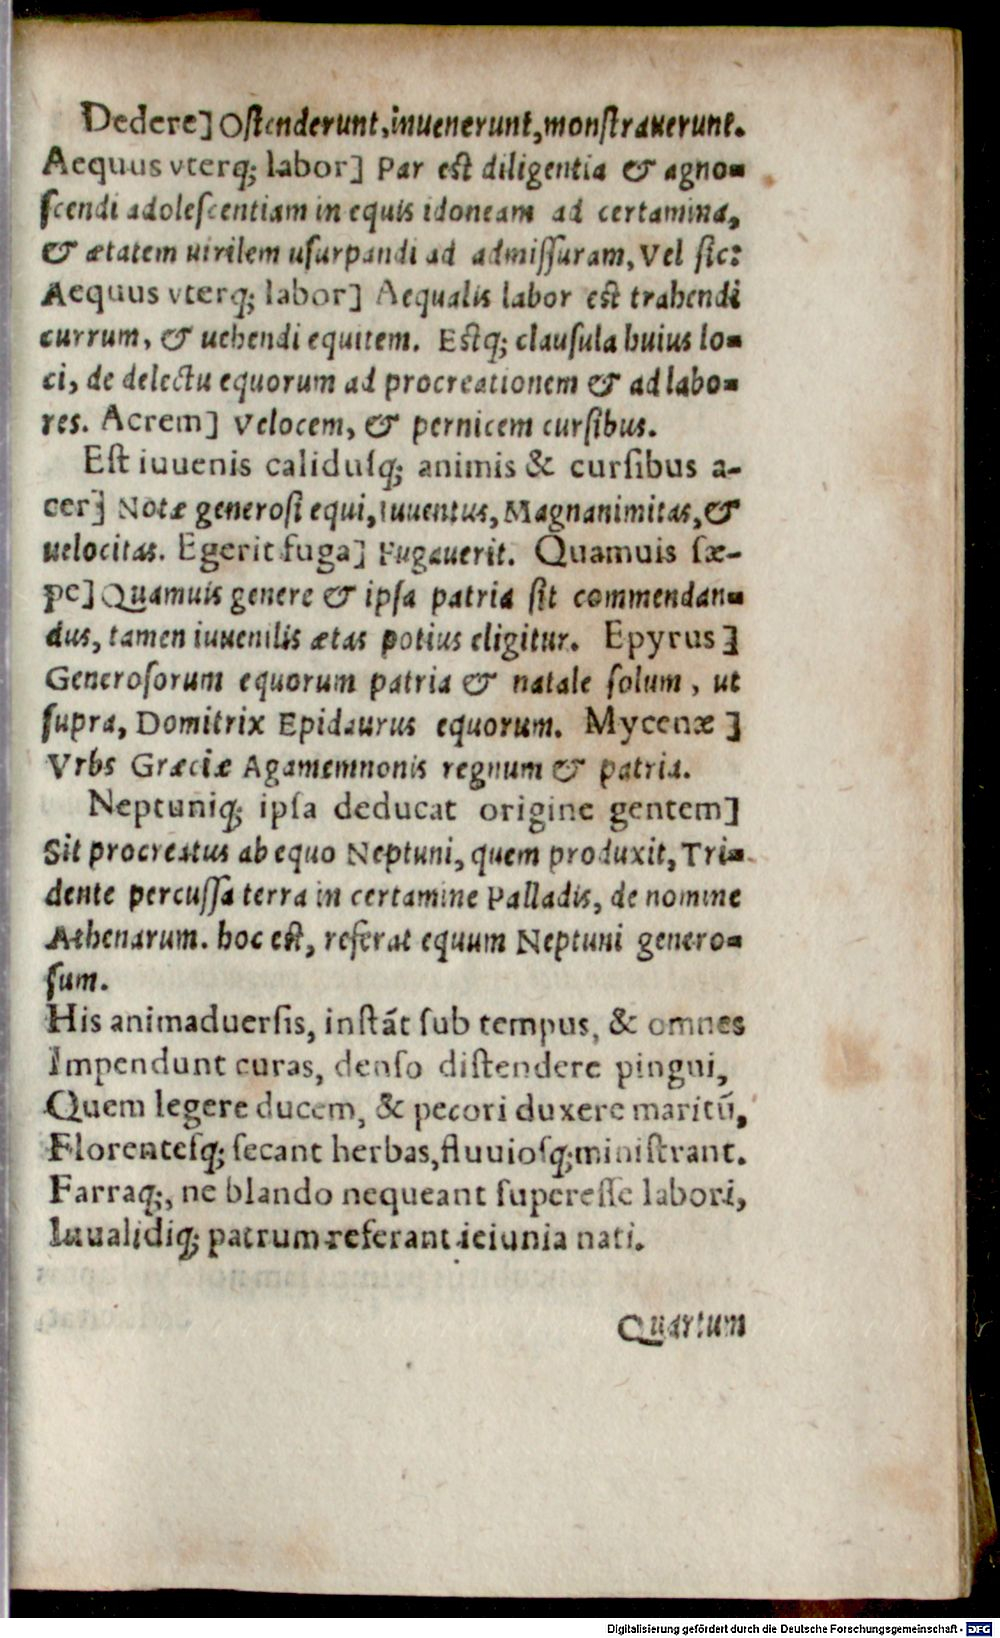 Dedere] Oſtenderunt, inuenerunt, monſtrauerunt.
Aequus vterq; labor] Par est diligentia & agno-
ſcendi adoleſcentiam in equis idoneam ad certamina,
& ætatem uirilem uſurpandi ad admiſſuram, Vel ſic:
Aequus vterq; labor] Aequalis labor est trahendi
currum, & uehendi equitem. Estq; clauſula huius lo-
ci, de delectu equorum ad procreationem & ad labo-
res. Acrem] Velocem, & pernicem curſibus.
Est iuuenis caliduſq; animis & curſibus a-
cer] Notæ generoſi equi, Iuuentus, Magnanimitas, &
uelocitas. Egerit fuga] Fugauerit. Quamuis ſæ-
pe] Quamuis genere & ipſa patria ſit commendan-
dus, tamen iuuenilis ætas potius eligitur. Epyrus]
Generoſorum equorum patria & natale ſolum, ut
ſupra, Domitrix Epidaurus equorum. Mycenæ]
Vrbs Græciæ Agamemnonis regnum & patria.
Neptuniq; ipſa deducat origine gentem]
Sit procreatus ab equo Neptuni, quem produxit, Tri-
dente percuſſa terra in certamine Palladis, de nomine
Athenarum. hoc est, referat equum Neptuni genero-
ſum.
His animaduerſis, inſtāt ſub tempus, & omnes
Impendunt curas, denſo diſtendere pingui,
Quem legere ducem, & pecori duxere maritū,
Florenteſq; ſecant herbas, fluuioſq; miniſtrant.
Farraq;, ne blando nequeant ſupereſſe labori,
Iuualidiq; patrum referant ieiunia nati.
Quartum
Digitalisierung gefördert durch die Deutsche Forschungsgemeinschaft - DFG